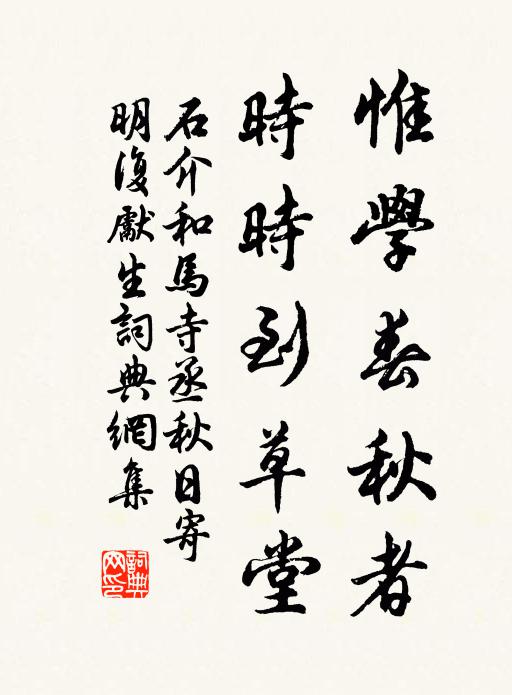 惟學春秋者
時時到草堂
石介和馬寺丞秋日寄
明復獻生詞典網集
詞典
网印